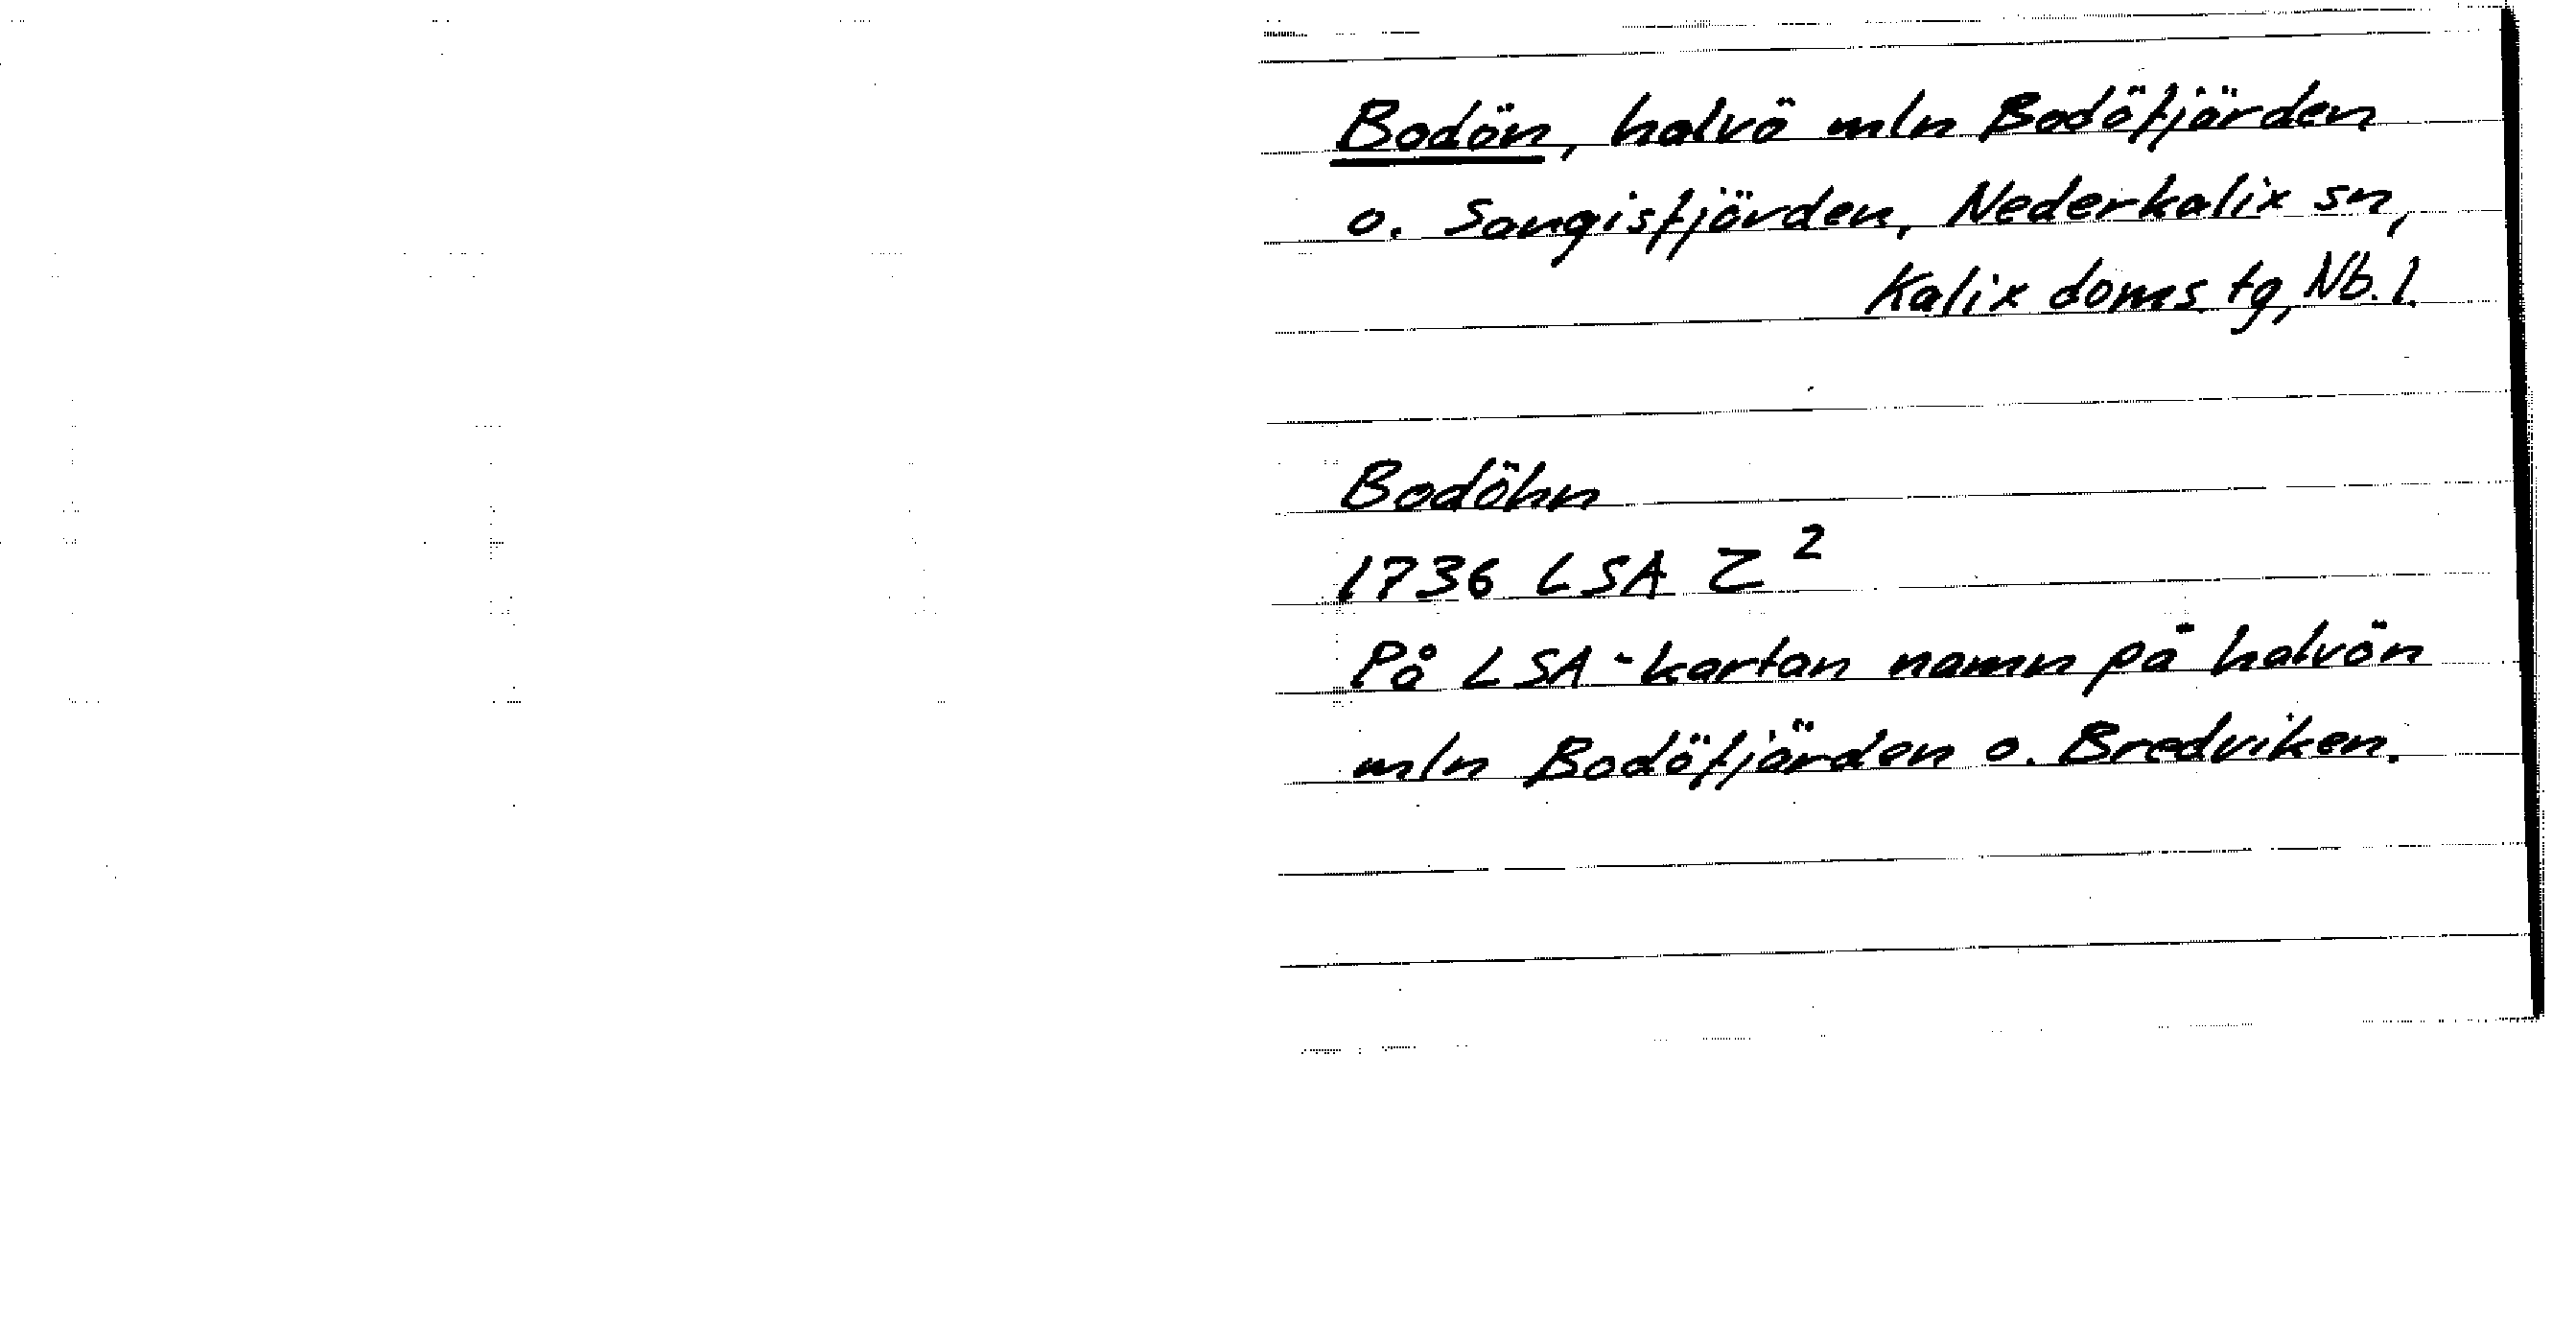 Bodön, halvö mln Bodöfjärden
o. Sangisfjärden, Nederkalix sn,
Kalix doms. tg, Nb. l.
Bodöhn
1736 LSA Z²
På LSA-kartan namn på halvön
mln Bodöfjärden o. Bredviken.